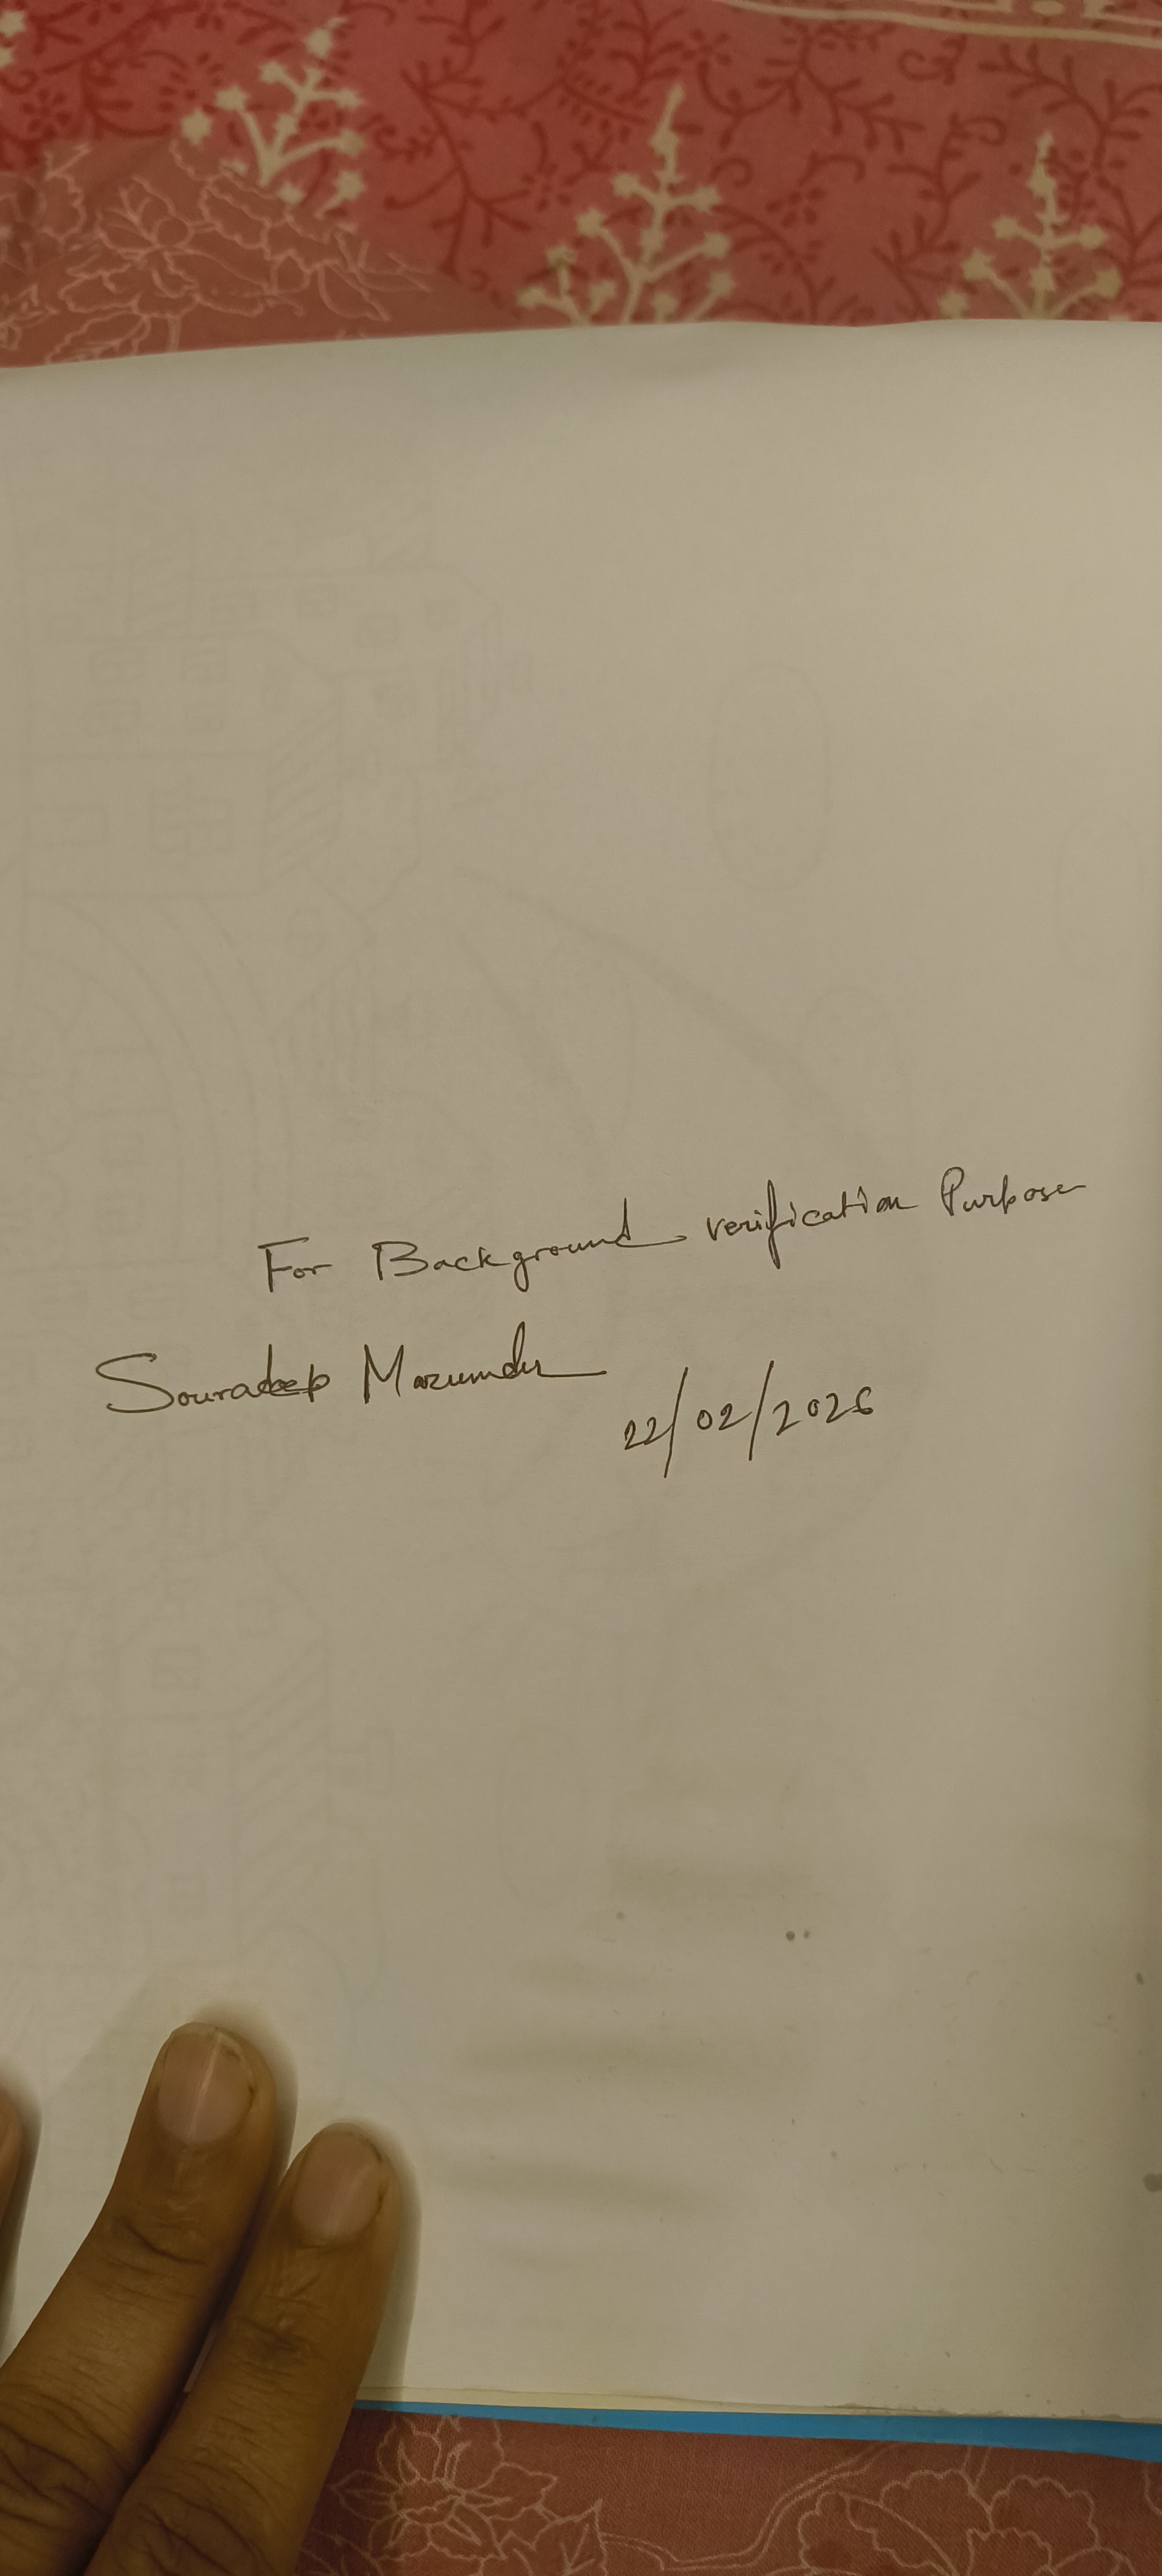 For Background verification Purpose
Souradeep Mazumder
22/02/2026